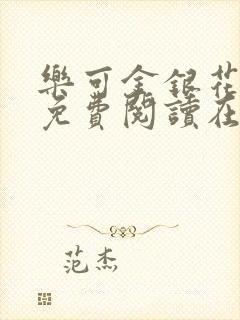 樂可金銀花
免費閱讀在
范杰